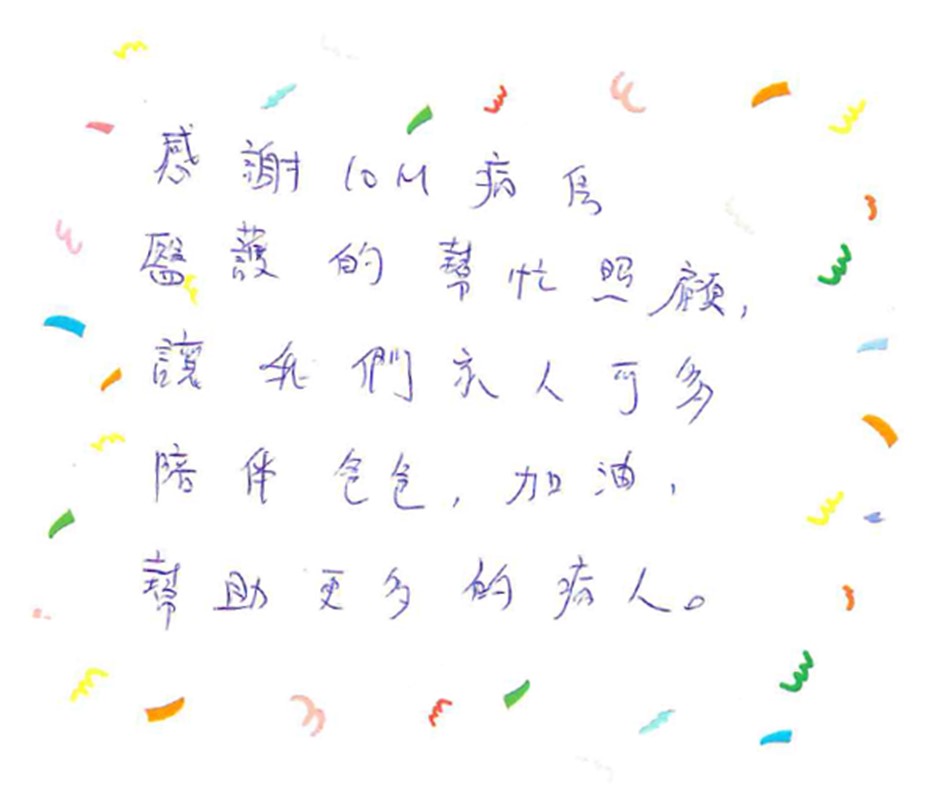 感謝10M病房
醫護的幫忙照顧,
讓我們家人可多
陪伴爸爸,加油,
幫助更多的病人。